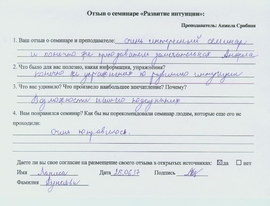 Отзыв о семинаре «Развитие интуиции»:
Преподаватель: Анжела Срибная
1. Ваш отзыв о семинаре и преподавателе: Очень интересный семинар
и конечно же преподаватель замечательный Анжела
2. Что было для вас полезно, какая информация, упражнения?
конечно же упражнения по развитию интуиции
3. Что вас удивило? Что произвело наибольшее впечатление? Почему?
Возможности нашего подсознания
4. Вам понравился семинар? Как бы вы порекомендовали семинар людям, которые еще его не
проходили:
Очень понравилось.
Даете ли вы свое согласие на размещение своего отзыва в открытых источниках: да нет
Имя Лариса Дата 25.06.17 Подпись
Фамилия